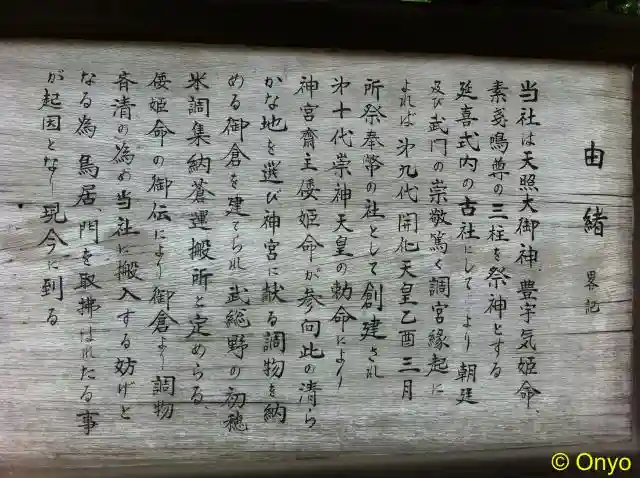 由緒 畧記
当社は天照大御神、豊宇気姫命、
素戔鳴尊の三柱を祭神とする
延喜式内の古社にして、より朝廷
及び武門の崇敬篤く調宮縁起に
よれば第九代開化天皇乙酉三月
所祭奉幣の社として創建され
第十代崇神天皇の勅命により
神宮齋主倭姫命が参向此の清ら
かな地を選び神宮に献る調物を納
める御倉を建てられ武総野の初穂
米調集納蒼運搬所と定めらる、
倭姫命の御伝により御倉より調物
斉清の為め当社に搬入する妨げと
なる為鳥居、門を取拂はれたる事
が起因となり現今に到る
© Onyo